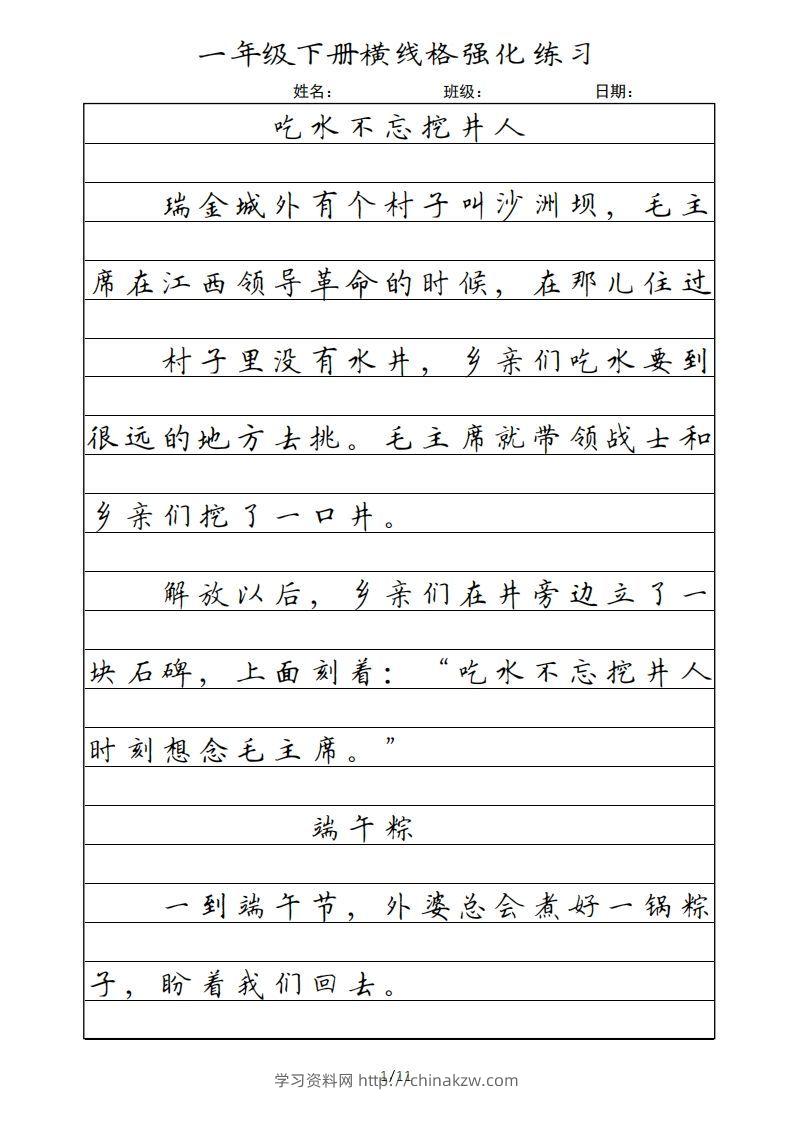 一年级下册横线格强化练习
姓名: 班级: 日期:
吃水不忘挖井人
瑞金城外有个村子叫沙洲坝，毛主
席在江西领导革命的时候，在那儿住过
村子里没有水井，乡亲们吃水要到
很远的地方去挑。毛主席就带领战士和
乡亲们挖了一口井。
解放以后，乡亲们在井旁边立了一
块石碑，上面刻着：“吃水不忘挖井人
时刻想念毛主席。”
端午粽
一到端午节，外婆总会煮好一锅粽
子，盼着我们回去。
1/11
学习资料网 http://chinakzw.com